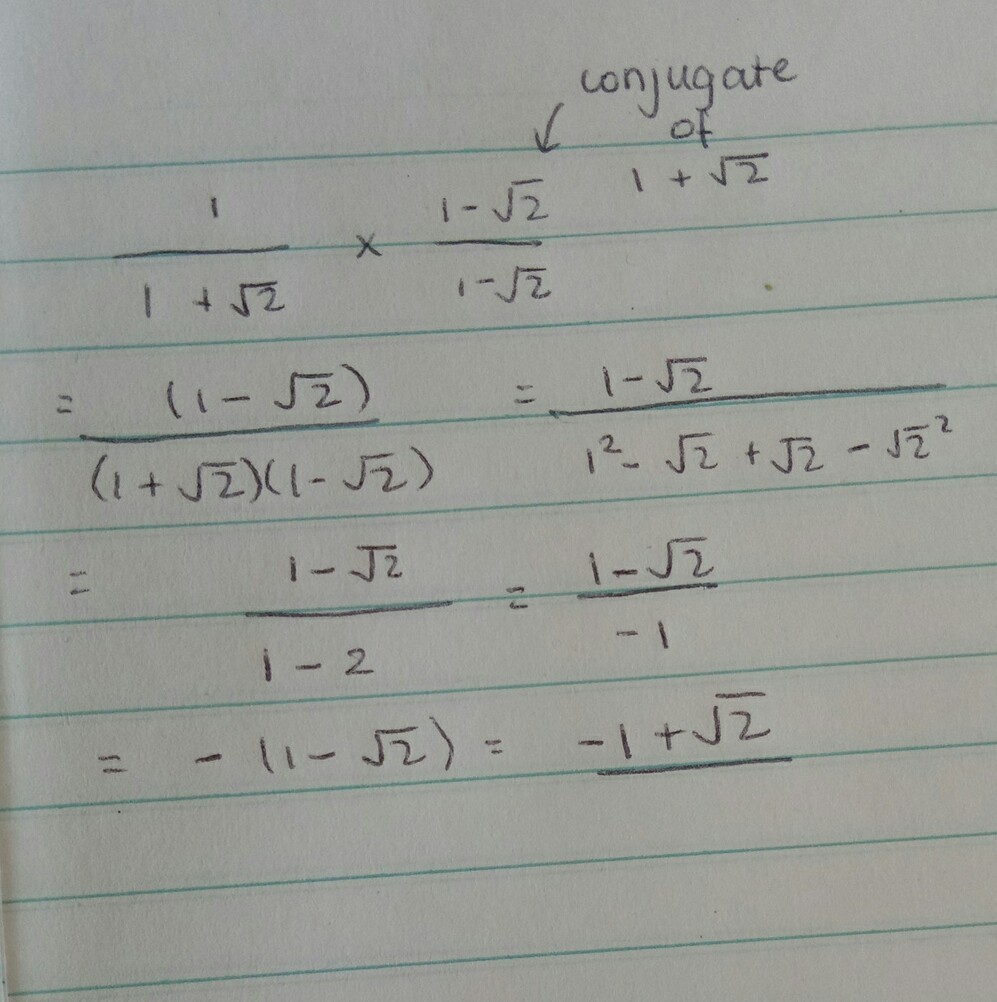 conjugate
of
1 + √2
1 / 1 + √2 × 1 - √2 / 1 - √2
= (1 - √2) / (1 + √2)(1 - √2) = 1 - √2 / 1² - √2 + √2 - √2²
= 1 - √2 / 1 - 2 = 1 - √2 / -1
= - (1 - √2) = -1 + √2